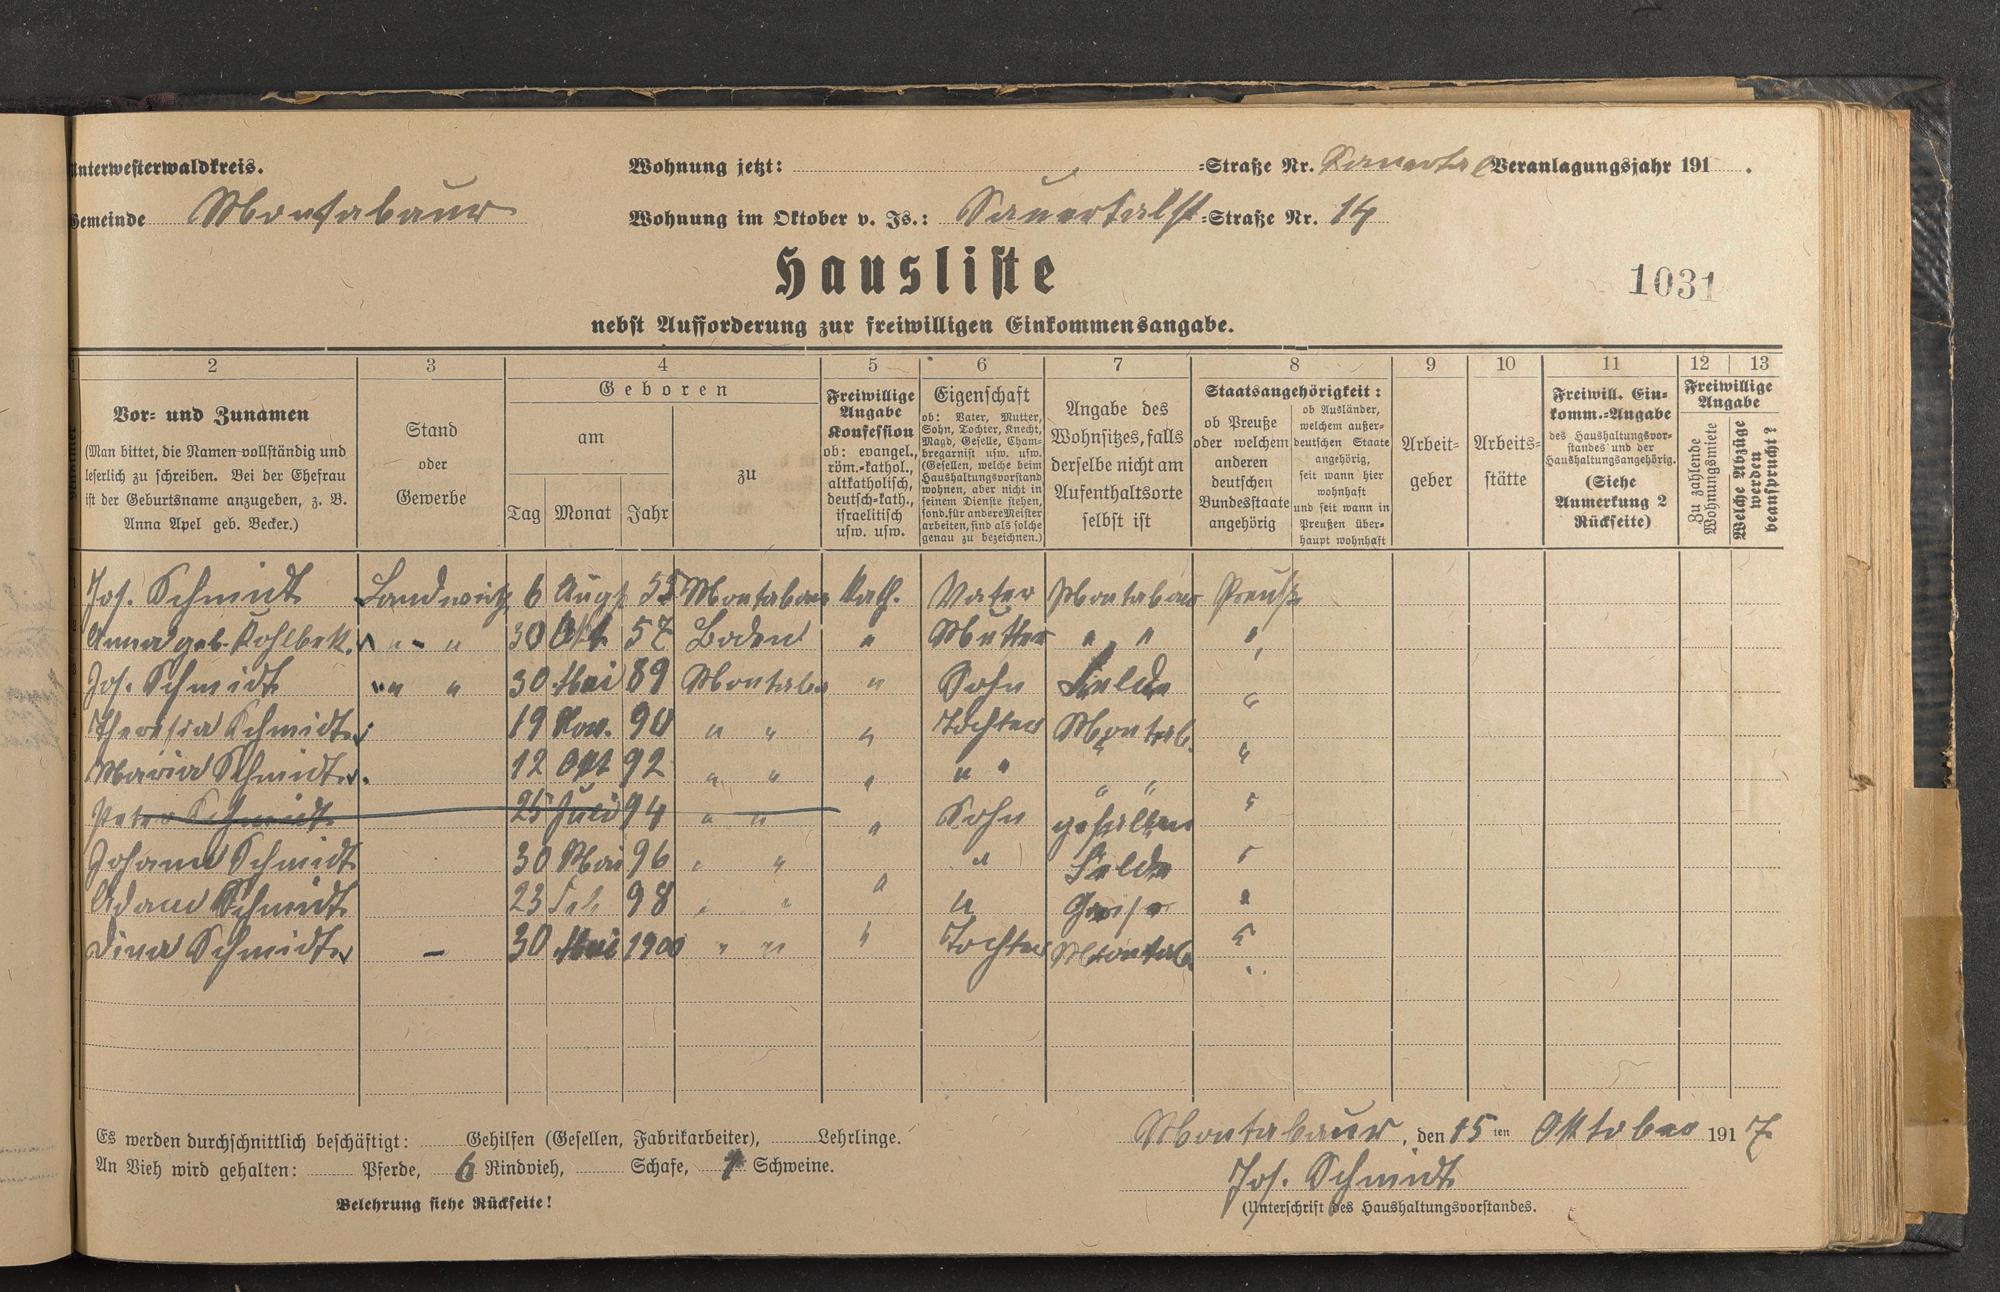 Unterwesterwaldkreis.
Wohnung jetzt: =Straße Nr. Sauertal Veranlagungsjahr 191 .
Gemeinde Montabaur
Wohnung im Oktober v. Js.: Sauertalst =Straße Nr. 14
Hausliste
1031
nebst Aufforderung zur freiwilligen Einkommensangabe.
2 3 4 5 6 7 8 9 10 11 12 13
Vor- und Zunamen
(Man bittet, die Namen vollständig und
leserlich zu schreiben. Bei der Ehefrau
ist der Geburtsname anzugeben, z. B.
Anna Apel geb. Becker.)
Stand
oder
Gewerbe
Geboren
am
Tag Monat Jahr
zu
Freiwillige
Angabe
Konfession
ob: evangel.,
röm.-kathol.,
altkatholisch,
deutsch-kath.,
israelitisch
usw. usw.
Eigenschaft
ob: Vater, Mutter,
Sohn, Tochter, Knecht,
Magd, Geselle, Cham-
bregarnist usw. usw.
(Gesellen, welche beim
Haushaltungsvorstand
wohnen, aber nicht in
seinem Dienste stehen,
sond. für andere Meister
arbeiten, sind als solche
genau zu bezeichnen.)
Angabe des
Wohnsitzes, falls
derselbe nicht am
Aufenthaltsorte
selbst ist
Staatsangehörigkeit:
ob Preuße
oder welchem
anderen
deutschen
Bundesstaate
angehörig
ob Ausländer,
welchem außer-
deutschen Staate
angehörig,
seit wann hier
wohnhaft
und seit wann in
Preußen über-
haupt wohnhaft
Arbeit-
geber
Arbeits-
stätte
Freiwill. Ein-
komm.-Angabe
des Haushaltungsvor-
standes und der
Haushaltungsangehörig.
(Siehe
Anmerkung 2
Rückseite)
Freiwillige
Angabe
Zu zahlende
Wohnungsmiete
Welche Abzüge
werden
beansprucht?
Jos. Schmidt Landwirth 6 Augst 55 Montabaur Kath. Vater Montabaur Preuße
Anna geb. Kohlbek. " - " 30 Okt 57 Boden " Mutter " " "
Jos. Schmidt " " 30 Mai 89 Montabr " Sohn Felde "
Theresia Schmidt 19 Nov. 90 " " " Tochter Montab. "
Maria Schmidt 12 Okt 92 " " " " " " " "
Peter Schmidt 25 Juli 94 " " " Sohn gefallen "
Johann Schmidt 30 Mai 96 " " " " Felde "
Adam Schmidt 23 Feb 98 " " " " "
Lina Schmidt - 30 Mai 1900 " " " Tochter Montab. "
Es werden durchschnittlich beschäftigt: Gehilfen (Gesellen, Fabrikarbeiter), Lehrlinge.
An Vieh wird gehalten: Pferde, 6 Rindvieh, Schafe, 1 Schweine.
Belehrung siehe Rückseite!
Montabaur, den 15 ten Oktober 1917
Jos. Schmidt
(Unterschrift des Haushaltungsvorstandes.